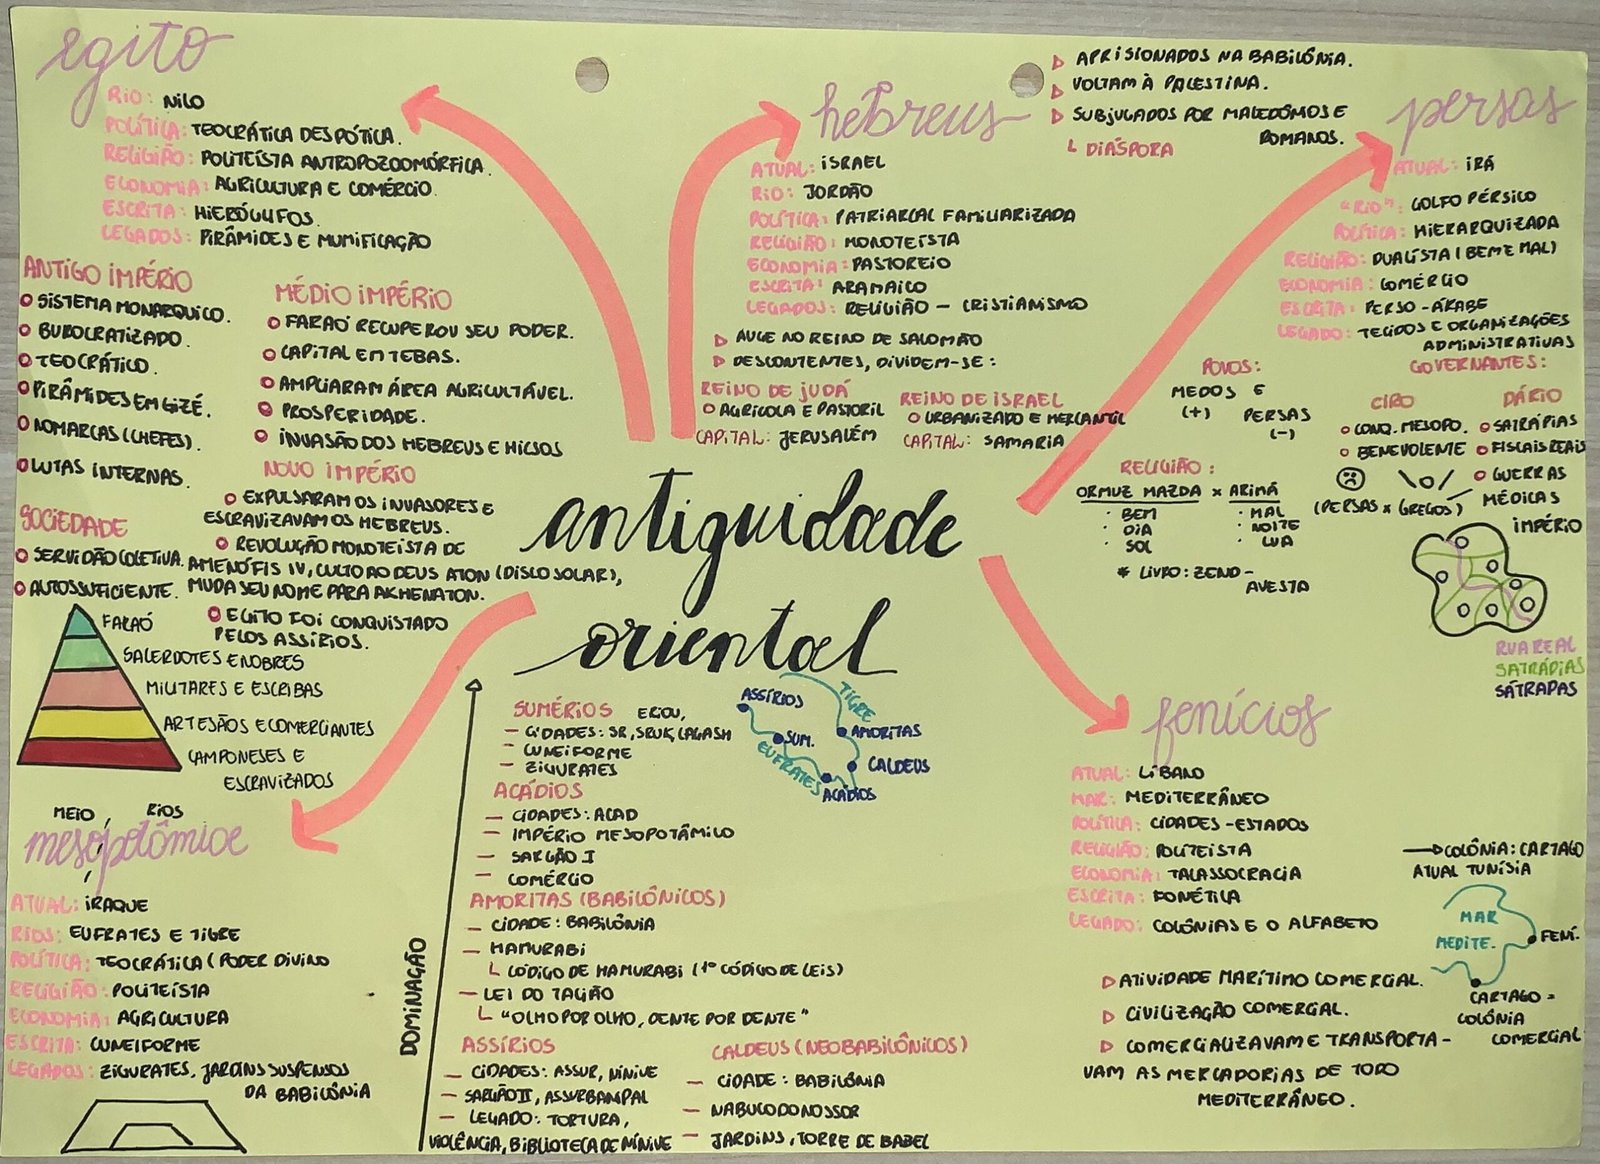 egito
RIO: NILO
POLÍTICA: TEOCRÁTICA DESPÓTICA.
RELIGIÃO: POLITEÍSTA ANTROPOZOOMÓRFICA.
ECONOMIA: AGRICULTURA E COMÉRCIO.
ESCRITA: HIERÓGLIFOS.
LEGADOS: PIRÂMIDES E MUMIFICAÇÃO
ANTIGO IMPÉRIO
SISTEMA MONARQUICO.
BUROCRATIZADO.
TEOCRÁTICO.
PIRÂMIDES EM GIZÉ.
NOMARCAS (CHEFES).
LUTAS INTERNAS.
MÉDIO IMPÉRIO
FARAÓ RECUPEROU SEU PODER.
CAPITAL EM TEBAS.
AMPLIARAM ÁREA AGRICULTÁVEL.
PROSPERIDADE.
INVASÃO DOS HEBREUS E HICSOS
NOVO IMPÉRIO
EXPULSARAM OS INVASORES E
ESCRAVIZAVAM OS HEBREUS.
REVOLUÇÃO MONOTEISTA DE
AMENÓFIS IV, CULTO AO DEUS ATON (DISCO SOLAR),
MUDA SEU NOME PARA AKHENATON.
EGITO FOI CONQUISTADO
PELOS ASSÍRIOS.
SOCIEDADE
SERVIDÃO COLETIVA.
AUTOSSUFICIENTE.
FARAÓ
SACERDOTES E NOBRES
MILITARES E ESCRIBAS
ARTESÃOS E COMERCIANTES
CAMPONESES E
ESCRAVIZADOS
hebreus
ATUAL: ISRAEL
RIO: JORDÃO
POLÍTICA: PATRIARCAL FAMILIARIZADA
RELIGIÃO: MONOTEÍSTA
ECONOMIA: PASTOREIO
ESCRITA: ARAMAICO
LEGADOS: RELIGIÃO – CRISTIANISMO
AUGE NO REINO DE SALOMÃO
DESCONTENTES, DIVIDEM-SE:
REINO DE JUDÁ
AGRICOLA E PASTORIL
CAPITAL: JERUSALÉM
REINO DE ISRAEL
URBANIZADO E MERCANTIL
CAPITAL: SAMARIA
APRISIONADOS NA BABILÔNIA.
VOLTAM À PALESTINA.
SUBJUGADOS POR MACEDÔMOS E
ROMANOS.
DIÁSPORA
persas
ATUAL: IRÃ
"RIO": GOLFO PÉRSICO
POLÍTICA: HIERARQUIZADA
RELIGIÃO: DUALISTA (BEM E MAL)
ECONOMIA: COMÉRCIO
ESCRITA: PERSO-ÁRABE
LEGADO: TECIDOS E ORGANIZAÇÕES
ADMINISTRATIVAS
POVOS:
MEDOS E
(+) PERSAS
(-)
GOVERNANTES:
CIRO
CONQ. MESOPO.
BENEVOLENTE
DÁRIO
SATRÁPIAS
FISCAIS REAIS
GUERRAS
MÉDICAS
(PERSAS X GREGOS)
IMPÉRIO
RUA REAL
SATRÁPIAS
SÁTRAPAS
RELIGIÃO:
ORMUZ MAZDA X ARIMÃ
· BEM · MAL
· DIA · NOITE
· SOL · LUA
* LIVRO: ZEND-
AVESTA
antiguidade
oriental
MEIO RIOS
mesopotâmia
ATUAL: IRAQUE
RIOS: EUFRATES E TIGRE
POLÍTICA: TEOCRÁTICA (PODER DIVINO
RELIGIÃO: POLITEÍSTA
ECONOMIA: AGRICULTURA
ESCRITA: CUNEIFORME
LEGADOS: ZIGURATES, JARDINS SUSPENSOS
DA BABILÔNIA
DOMINAÇÃO
SUMÉRIOS
ERIDU,
– CIDADES: UR, URUK, LAGASH
– CUNEIFORME
– ZIGURATES
ACÁDIOS
– CIDADES: ACAD
– IMPÉRIO MESOPOTÂMICO
– SARGÃO I
– COMÉRCIO
AMORITAS (BABILÔNICOS)
– CIDADE: BABILÔNIA
– HAMURABI
CÓDIGO DE HAMURABI (1º CÓDIGO DE LEIS)
– LEI DO TALIÃO
"OLHO POR OLHO, DENTE POR DENTE"
ASSÍRIOS
– CIDADES: ASSUR, NÍNIVE
– SARGÃO II, ASSURBANIPAL
– LEGADO: TORTURA,
VIOLÊNCIA, BIBLIOTECA DE NÍNIVE
CALDEUS (NEOBABILÔNICOS)
– CIDADE: BABILÔNIA
– NABUCODONOSSOR
– JARDINS, TORRE DE BABEL
ASSÍRIOS
TIGRE
AMORITAS
SUM.
EUFRATES
CALDEUS
ACÁDIOS
fenícios
ATUAL: LÍBANO
MAR: MEDITERRÂNEO
POLÍTICA: CIDADES-ESTADOS
RELIGIÃO: POLITEÍSTA
ECONOMIA: TALASSOCRACIA
ESCRITA: FONÉTICA
LEGADO: COLÔNIAS E O ALFABETO
COLÔNIA: CARTAGO
ATUAL TUNÍSIA
MAR
MEDITE.
FENÍ.
CARTAGO =
COLÔNIA
COMERCIAL
ATIVIDADE MARÍTIMO COMERCIAL.
CIVILIZAÇÃO COMERCIAL.
COMERCIALIZAVAM E TRANSPORTA-
VAM AS MERCADORIAS DE TODO
MEDITERRÂNEO.